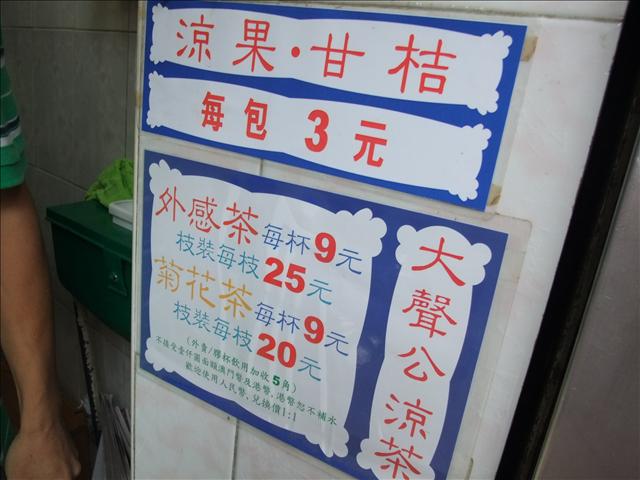 涼果·甘桔
每包3元
外感茶每杯9元
枝裝每枝25元
菊花茶每杯9元
枝裝每枝20元
(外賣/膠杯飲用加收5角)
不接受壹仟圓面額澳門幣及港幣,港幣恕不補水
歡迎使用人民幣,兌換價1:1
大聲公涼茶